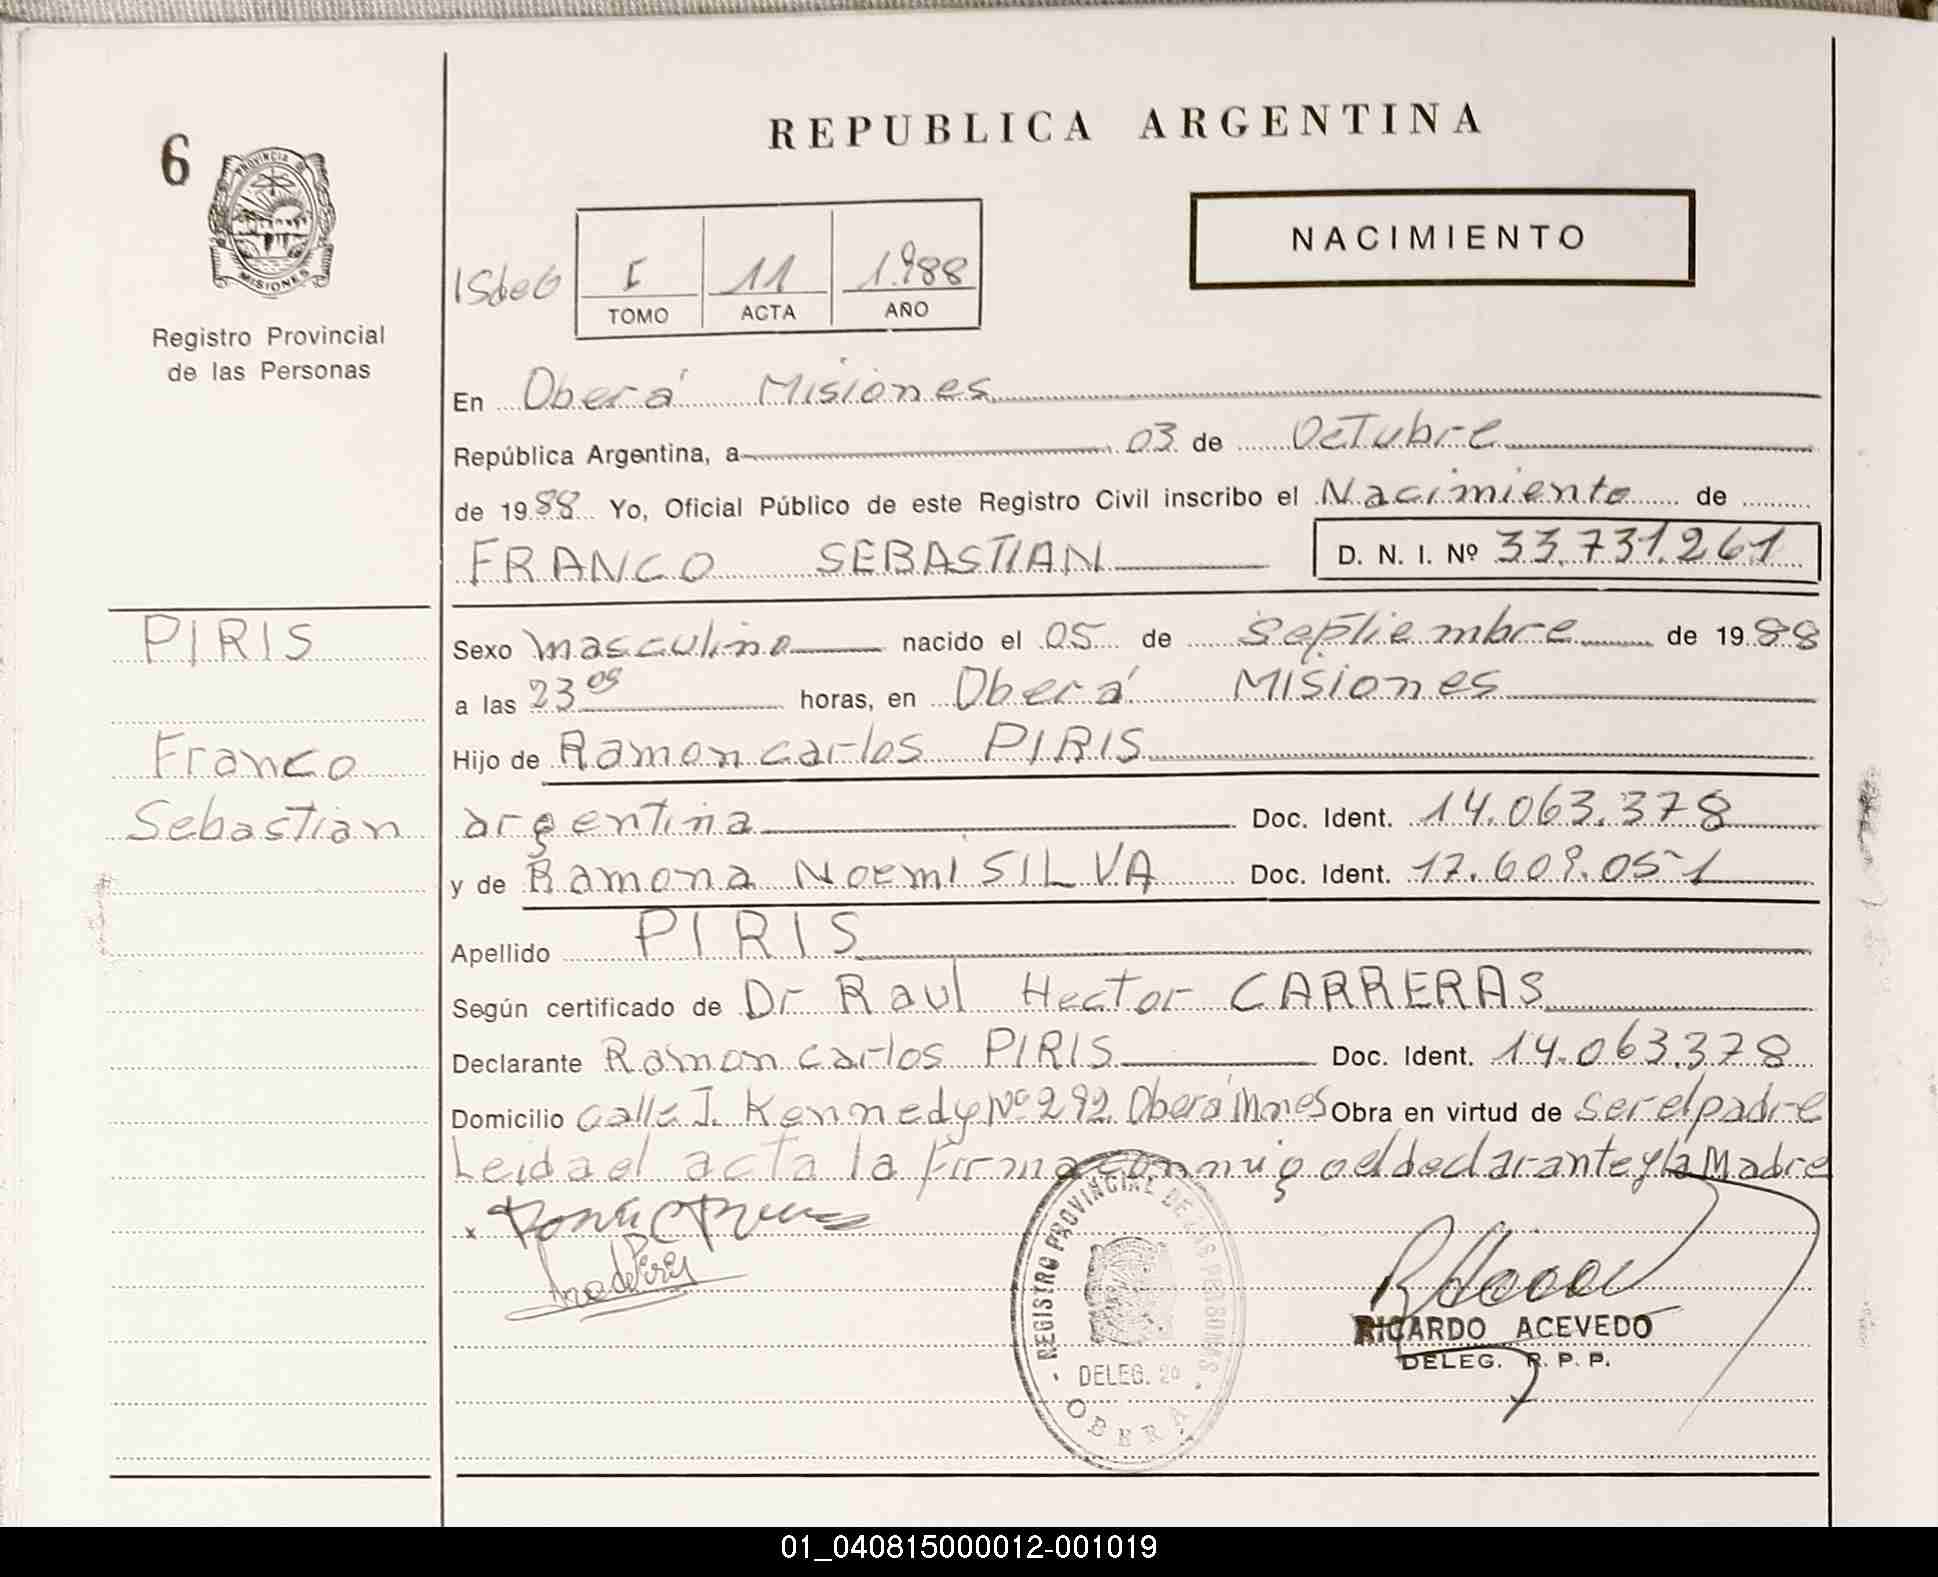 6
PROVINCIA DE
MISIONES
Registro Provincial
de las Personas
REPUBLICA ARGENTINA
NACIMIENTO
ISdeG
I 11 1.988
TOMO ACTA AÑO
En Oberá Misiones
República Argentina, a 03 de Octubre
de 1988 Yo, Oficial Público de este Registro Civil inscribo el Nacimiento de
FRANCO SEBASTIAN D. N. I. Nº 33.731.261
PIRIS
Franco
Sebastian
Sexo masculino nacido el 05 de Septiembre de 1988
a las 23 05 horas, en Oberá Misiones
Hijo de Ramon carlos PIRIS
argentina Doc. Ident. 14.063.378
y de Ramona Noemi SILVA Doc. Ident. 17.609.051
Apellido PIRIS
Según certificado de Dr Raul Hector CARRERAS
Declarante Ramon carlos PIRIS Doc. Ident. 14.063.378
Domicilio calle J. Kennedy Nº 292 Oberá Mnes Obra en virtud de ser el padre
Leida el acta la firma conmigo el declarante y la Madre
x
REGISTRO PROVINCIAL DE LAS PERSONAS
DELEG. 2º
OBERA
RICARDO ACEVEDO
DELEG. R. P. P.
01_040815000012-001019